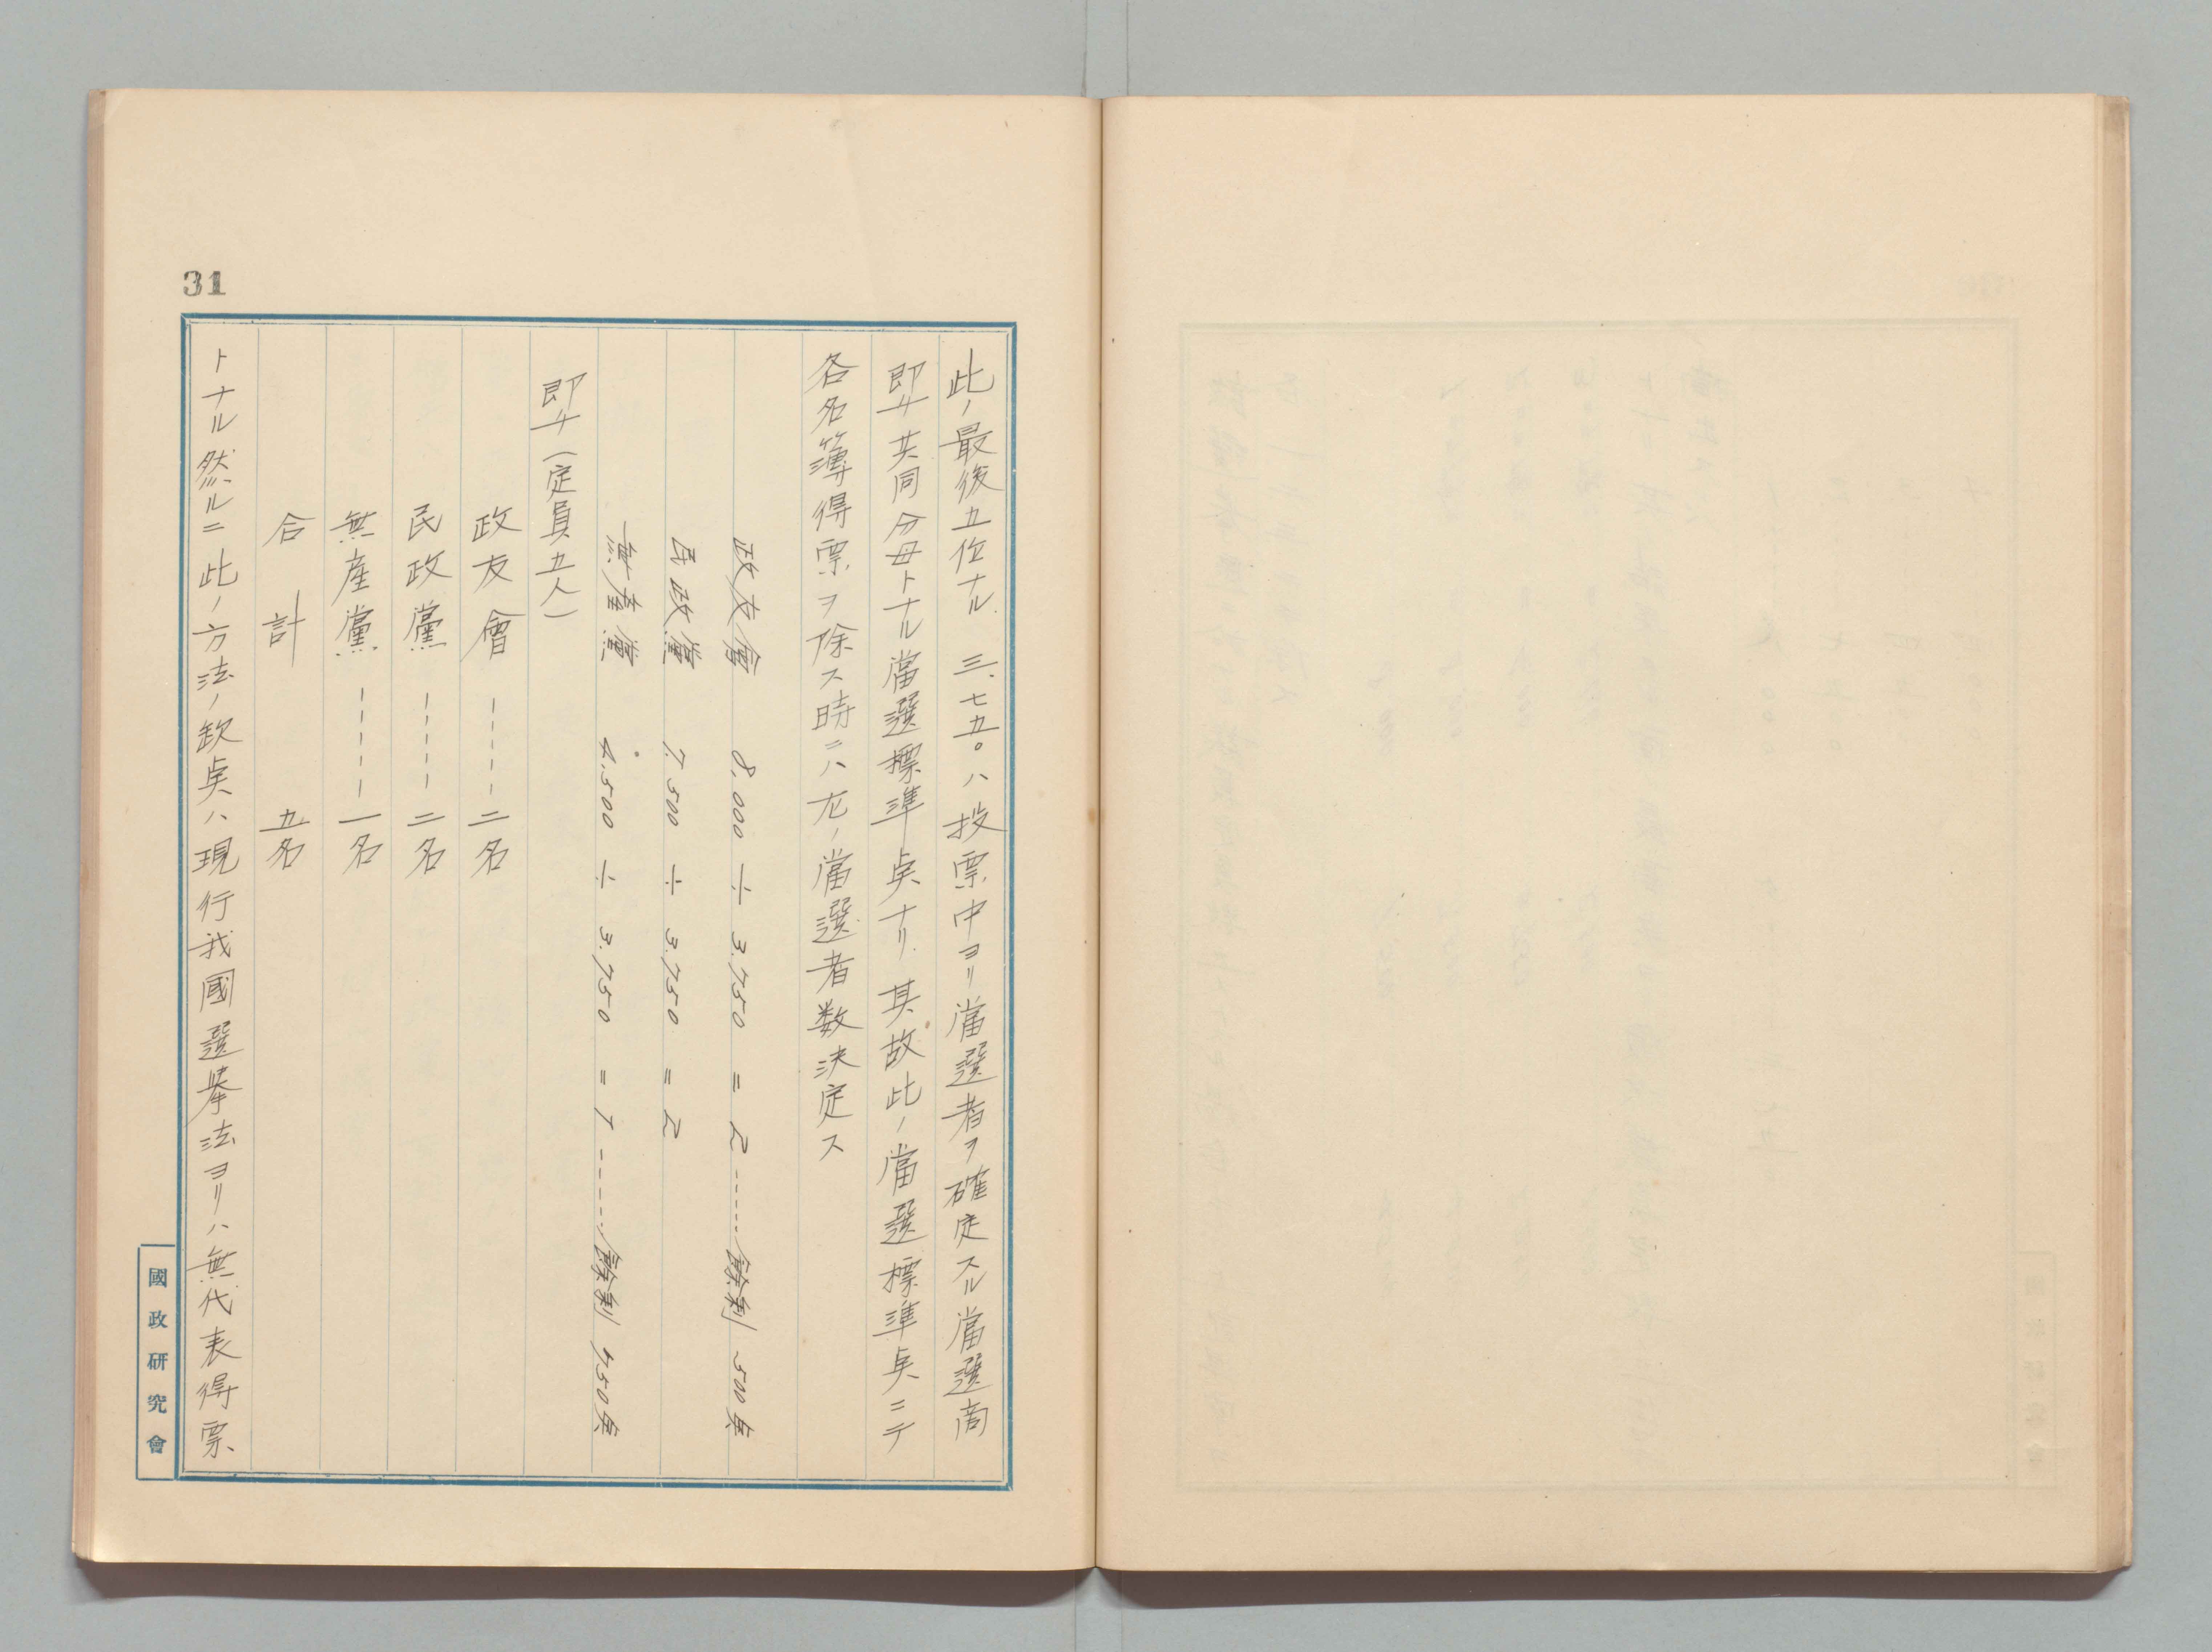 31
此ノ最後五位ナル 三、七五〇ハ投票中ヨリ當選者ヲ確定スル當選商
即チ共同分母トナル當選標準点ナリ 其故此ノ當選標準点ニテ
各名簿得票ヲ除ス時ニハ左ノ當選者数決定ス
政友會 8,000 ÷ 3,750 = 2 ------ 餘剰 500点
民政黨 7,500 ÷ 3,750 = 2
無産黨 4,500 ÷ 3,750 = 1 ----- 餘剰 750点
即チ(定員五人)
政友會 ----- 二名
民政黨 ----- 二名
無産黨 ----- 一名
合計 五名
トナル然ルニ此ノ方法ノ欽点ハ現行我國選擧法ヨリハ無代表得票
國政研究會